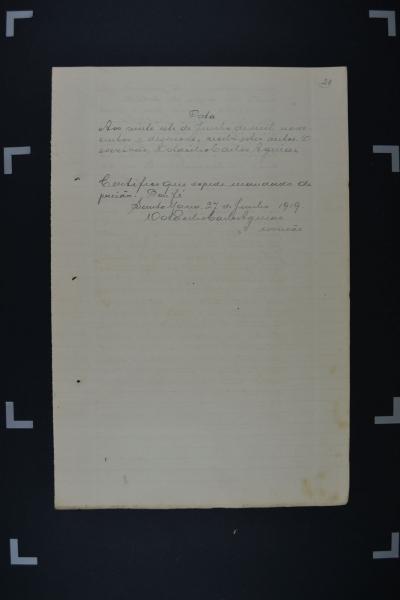 20
Data
Aos vinte sete de Junho de mil nove
centos e desenove, recebi estes autos. O
escrivão, Carlos Aguiar
Certifico que expedi mandado de
prisão. Dou fé
Santa Maria, 27 de Junho 1919
Carlos Aguiar
escrivão